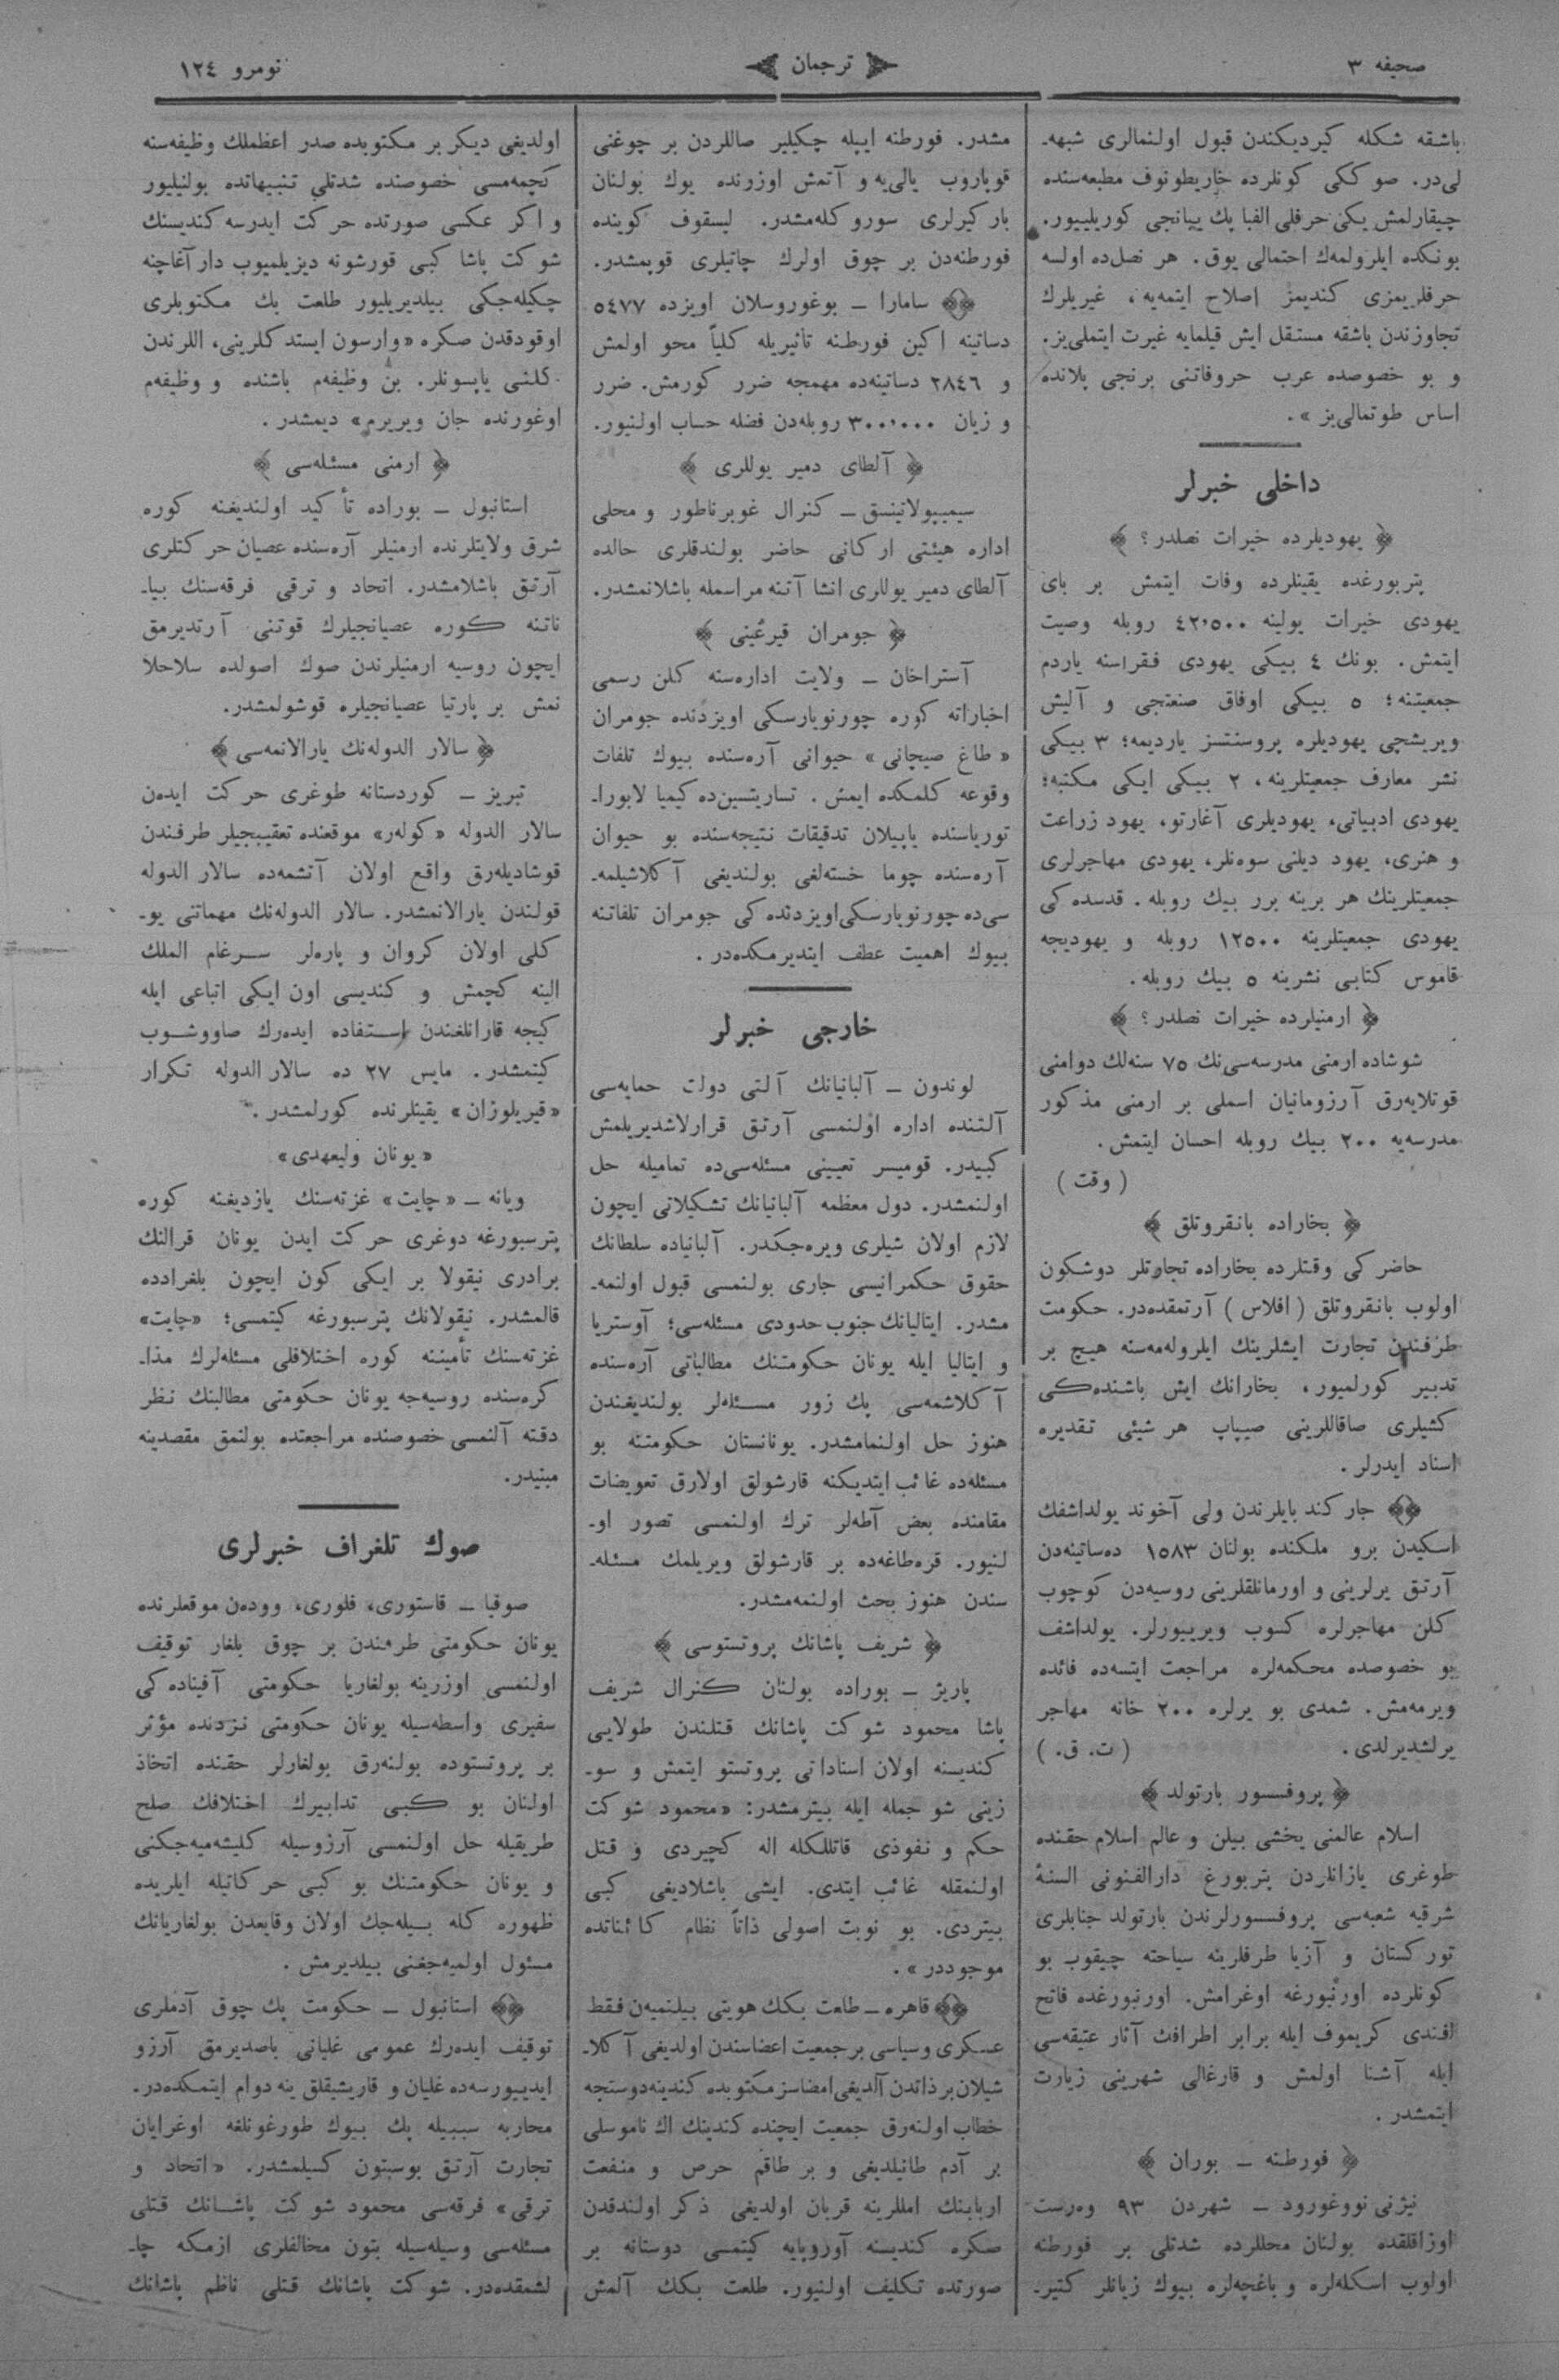 صحیفه ۳
ترجمان
نومرو ۱۲٤
باشقه شکله کیردیکندن قبول اولنمالری شبهه‌ـ
لی‌در. صوککی کونلرده خاریطونوف مطبعه‌سنده
چیقارلمش یکی حرفلی الفبا پك یبانجی کوریلییور.
بونکده ایلرولمەك احتمالی یوق. هر نصل‌ده اولسه
حرفلریمزی کندیمز اصلاح ایتمه‌یه، غیریلرك
تجاوزندن باشقه مستقل ایش قیلمایه غیرت ایتملی‌یز.
و بو خصوصده عرب حروفاتنی برنجی پلانده
اساس طوتمالی‌یز ».
داخلی خبرلر
﴿ یهودیلرده خیرات نصلدر؟ ﴾
پتربورغده یقینلرده وفات ایتمش بر بای
یهودی خیرات یولینه ٤٢٬٥٠٠ روبله وصیت
ایتمش. بونك ٤ بیکی یهودی فقراسنه یاردم
جمعیتنه؛ ٥ بیکی اوفاق صنعتجی و آلیش
ویریشچی یهودیلره پروسنتسز یاردیمه؛ ٣ بیکی
نشر معارف جمعیتلرینه، ٢ بیکی ایکی مکتبه؛
یهودی ادبیاتی، یهودیلری آغارتو، یهود زراعت
و هنری، یهود دیلنی سوەنلر، یهودی مهاجرلری
جمعیتلرینك هر برینه برر بیك روبله. قدسده کی
یهودی جمعیتلرینه ١٢٥٠٠ روبله و یهودیجه
قاموس کتابی نشرینه ٥ بیك روبله.
﴿ ارمنیلرده خیرات نصلدر؟ ﴾
شوشاده ارمنی مدرسه‌سی‌نك ٧٥ سنه‌لك دوامنی
قوتلایەرق آرزومانیان اسملی بر ارمنی مذکور
مدرسه‌یه ٢٠٠ بیك روبله احسان ایتمش.
( وقت )
﴿ بخاراده بانقروتلق ﴾
حاضرکی وقتلرده بخاراده تجارتلر دوشکون
اولوب بانقروتلق ( افلاس ) آرتمقده‌در. حکومت
طرفندن تجارت ایشلرینك ایلرولەمەسنه هیچ بر
تدبیر کورلمیور، بخارانك ایش باشنده‌کی
کشیلری صاقاللرینی صیپاپ هر شیئی تقدیره
اسناد ایدرلر.
﴿﴾ جارکند بایلرندن ولی آخوند یولداشفك
اسکیدن برو ملکنده بولنان ١٥٨٣ دەساتینه‌دن
آرتق یرلرینی و اورمانلقلرینی روسیه‌دن کوچوب
کلن مهاجرلره کسوب ویرییورلر. یولداشف
بو خصوصده محکمه‌لره مراجعت ایتسه‌ده فائده
ویرمەمش. شمدی بو یرلره ٢٠٠ خانه مهاجر
یرلشدیرلدی. ( ت. ق. )
﴿ پروفسور بارتولد ﴾
اسلام عالمنی یخشی بیلن و عالم اسلام حقنده
طوغری یازانلردن پتربورغ دارالفنونی السنۀ
شرقیه شعبه‌سی پروفسورلرندن بارتولد جنابلری
تورکستان و آزیا طرفلرینه سیاحته چیقوب بو
کونلرده اورنبورغه اوغرامش. اورنبورغده فاتح
افندی کریموف ایله برابر اطرافك آثار عتیقه‌سی
ایله آشنا اولمش و قارغالی شهرینی زیارت
ایتمشدر.
﴿ فورطنه ـ بوران ﴾
نیژنی نووغورود ـ شهردن ٩٣ وەرست
اوزاقلقده بولنان محللرده شدتلی بر فورطنه
اولوب اسکله‌لره و باغچه‌لره بیوك زیانلر کتیرـ
مشدر. فورطنه ایپله چکیلیر صاللردن بر چوغنی
قوپاروب یالی‌یه و آتمش اوزرنده یوك بولنان
بارکیرلری سوروکله‌مشدر. لیسقوف کوینده
فورطنه‌دن بر چوق اولرك چاتیلری قوپمشدر.
﴿﴾ سامارا ـ بوغوروسلان اویزده ٥٤٧٧
دساتینه اکین فورطنه تأثیریله کلیاً محو اولمش
و ٢٨٤٦ دساتینه‌ده مهمجه ضرر کورمش. ضرر
و زیان ٣٠٠٬٠٠٠ روبله‌دن فضله حساب اولنیور.
﴿ آلطای دمیر یوللری ﴾
سیمیپولاتینسق ـ کنرال غوبرناطور و محلی
اداره هیئتی ارکانی حاضر بولندقلری حالده
آلطای دمیر یوللری انشا آتنه مراسمله باشلانمشدر.
﴿ جومران قیرغینی ﴾
آستراخان ـ ولایت اداره‌سنه کلن رسمی
اخباراته کوره چورنویارسکی اویزدنده جومران
« طاغ صیچانی » حیوانی آره‌سنده بیوك تلفات
وقوعه کلمکده ایمش. تساریتسین‌ده کیمیا لابوراـ
توریاسنده یاپیلان تدقیقات نتیجه‌سنده بو حیوان
آره‌سنده چوما خسته‌لغی بولندیغی آکلاشیلمه‌ـ
سی‌ده چورنویارسکی اویزدنده کی جومران تلفاتنه
بیوك اهمیت عطف ایتدیرمکده‌در.
خارجی خبرلر
لوندون ـ آلبانیانك آلتی دولت حمایه‌سی
آلتنده اداره اولنمسی آرتق قرارلاشدیریلمش
کبیدر. قومیسر تعیینی مسئله‌سی‌ده تمامیله حل
اولنمشدر. دول معظمه آلبانیانك تشکیلاتی ایچون
لازم اولان شیلری ویره‌جکدر. آلبانیاده سلطانك
حقوق حکمرانیسی جاری بولنمسی قبول اولنمه‌ـ
مشدر. ایتالیانك جنوب حدودی مسئله‌سی؛ آوستریا
و ایتالیا ایله یونان حکومتنك مطالباتی آره‌سنده
آکلاشمه‌سی پك زور مسئله‌لر بولندیغندن
هنوز حل اولنمامشدر. یونانستان حکومتنه بو
مسئله‌ده غائب ایتدیکنه قارشولق اولارق تعویضات
مقامنده بعض آطه‌لر ترك اولنمسی تصور اوـ
لنیور. قره‌طاغه‌ده بر قارشولق ویریلمك مسئله‌ـ
سندن هنوز بحث اولنمه‌مشدر.
﴿ شریف پاشانك پروتستوسی ﴾
پاریژ ـ بوراده بولنان کنرال شریف
پاشا محمود شوکت پاشانك قتلندن طولایی
کندیسنه اولان اسناداتی پروتستو ایتمش و سوـ
زینی شو جمله ایله بیترمشدر: «محمود شوکت
حکم و نفوذی قاتللکله اله کچیردی و قتل
اولنمقله غائب ایتدی. ایشی باشلادیغی کبی
بیتردی. بو نوبت اصولی ذاتاً نظام کائناتده
موجوددر ».
﴿﴾ قاهره ـ طلعت بکك هویتی بیلنمیەن فقط
عسکری و سیاسی بر جمعیت اعضاسندن اولدیغی آکلاـ
شیلان بر ذاتدن آلدیغی امضاسز مکتوبده کندینه دوستجه
خطاب اولنەرق جمعیت ایچنده کندینك اك ناموسلی
بر آدم طانیلدیغی و بر طاقم حرص و منفعت
اربابنك امللرینه قربان اولدیغی ذکر اولندقدن
صکره کندیسنه آوروپایه کیتمسی دوستانه بر
صورتده تکلیف اولنیور. طلعت بکك آلمش
اولدیغی دیکر بر مکتوبده صدر اعظملك وظیفه‌سنه
کچمه‌مسی خصوصنده شدتلی تنبیهاتده بولنیلیور
و اکر عکسی صورتده حرکت ایدرسه کندیسنك
شوکت پاشا کبی قورشونه دیزیلمیوب دار آغاچنه
چکیله‌جکی بیلدیریلیور طلعت بك مکتوبلری
اوقودقدن صکره «وارسون ایستدکلرینی، اللرندن
کلنی یاپسونلر. بن وظیفه‌م باشنده و وظیفه‌م
اوغورنده جان ویریرم» دیمشدر.
﴿ ارمنی مسئله‌سی ﴾
استانبول ـ بوراده تأکید اولندیغنه کوره
شرق ولایتلرنده ارمنیلر آره‌سنده عصیان حرکتلری
آرتق باشلامشدر. اتحاد و ترقی فرقه‌سنك بیاـ
ناتنه کوره عصیانجیلرك قوتنی آرتدیرمق
ایچون روسیه ارمنیلرندن صوك اصولده سلاحلا
نمش بر پارتیا عصیانجیلره قوشولمشدر.
﴿ سالار الدوله‌نك یارالانمه‌سی ﴾
تبریز ـ کوردستانه طوغری حرکت ایدەن
سالار الدوله «کولەر» موقعنده تعقیبجیلر طرفندن
قوشادیلەرق واقع اولان آتشمه‌ده سالار الدوله
قولندن یارالانمشدر. سالار الدوله‌نك مهماتنی یوـ
کلی اولان کروان و پاره‌لر سرغام الملك
الینه کچمش و کندیسی اون ایکی اتباعی ایله
کیجه قارانلغندن استفاده ایدەرك صاووشوب
کیتمشدر. مایس ٢٧ ده سالار الدوله تکرار
«قیریلوزان» یقینلرنده کورلمشدر.
«یونان ولیعهدی»
ویانه ـ «چایت» غزته‌سنك یازدیغنه کوره
پترسبورغه دوغری حرکت ایدن یونان قرالنك
برادری نیقولا بر ایکی کون ایچون بلغرادده
قالمشدر. نیقولانك پترسبورغه کیتمسی؛ «چایت»
غزته‌سنك تأمیننه کوره اختلافلی مسئله‌لرك مذاـ
کره‌سنده روسیه‌جه یونان حکومتی مطالبنك نظر
دقته آلنمسی خصوصنده مراجعتده بولنمق مقصدینه
مبنیدر.
صوك تلغراف خبرلری
صوفیا ـ قاستوری، فلوری، وودەن موقعلرنده
یونان حکومتی طرفندن بر چوق بلغار توقیف
اولنمسی اوزرینه بولغاریا حکومتی آفیناده کی
سفیری واسطه‌سیله یونان حکومتی نزدنده مؤثر
بر پروتستوده بولنەرق بولغارلر حقنده اتخاذ
اولنان بو کبی تدابیرك اختلافك صلح
طریقیله حل اولنمسی آرزوسیله کلیشه‌میه‌جکنی
و یونان حکومتنك بو کبی حرکاتیله ایلریده
ظهوره کله بیله‌جك اولان وقایعدن بولغاریانك
مسئول اولمیه‌جغنی بیلدیرمش.
﴿﴾ استانبول ـ حکومت پك چوق آدملری
توقیف ایدەرك عمومی غلیانی باصدیرمق آرزو
ایدییورسه‌ده غلیان و قاریشیقلق ینه دوام ایتمکده‌در.
محاربه سببیله پك بیوك طورغونلغه اوغرایان
تجارت آرتق بوسبتون کسیلمشدر. «اتحاد و
ترقی» فرقه‌سی محمود شوکت پاشانك قتلی
مسئله‌سی وسیله‌سیله بتون مخالفلری ازمکه چاـ
لشمقده‌در. شوکت پاشانك قتلی ناظم پاشانك